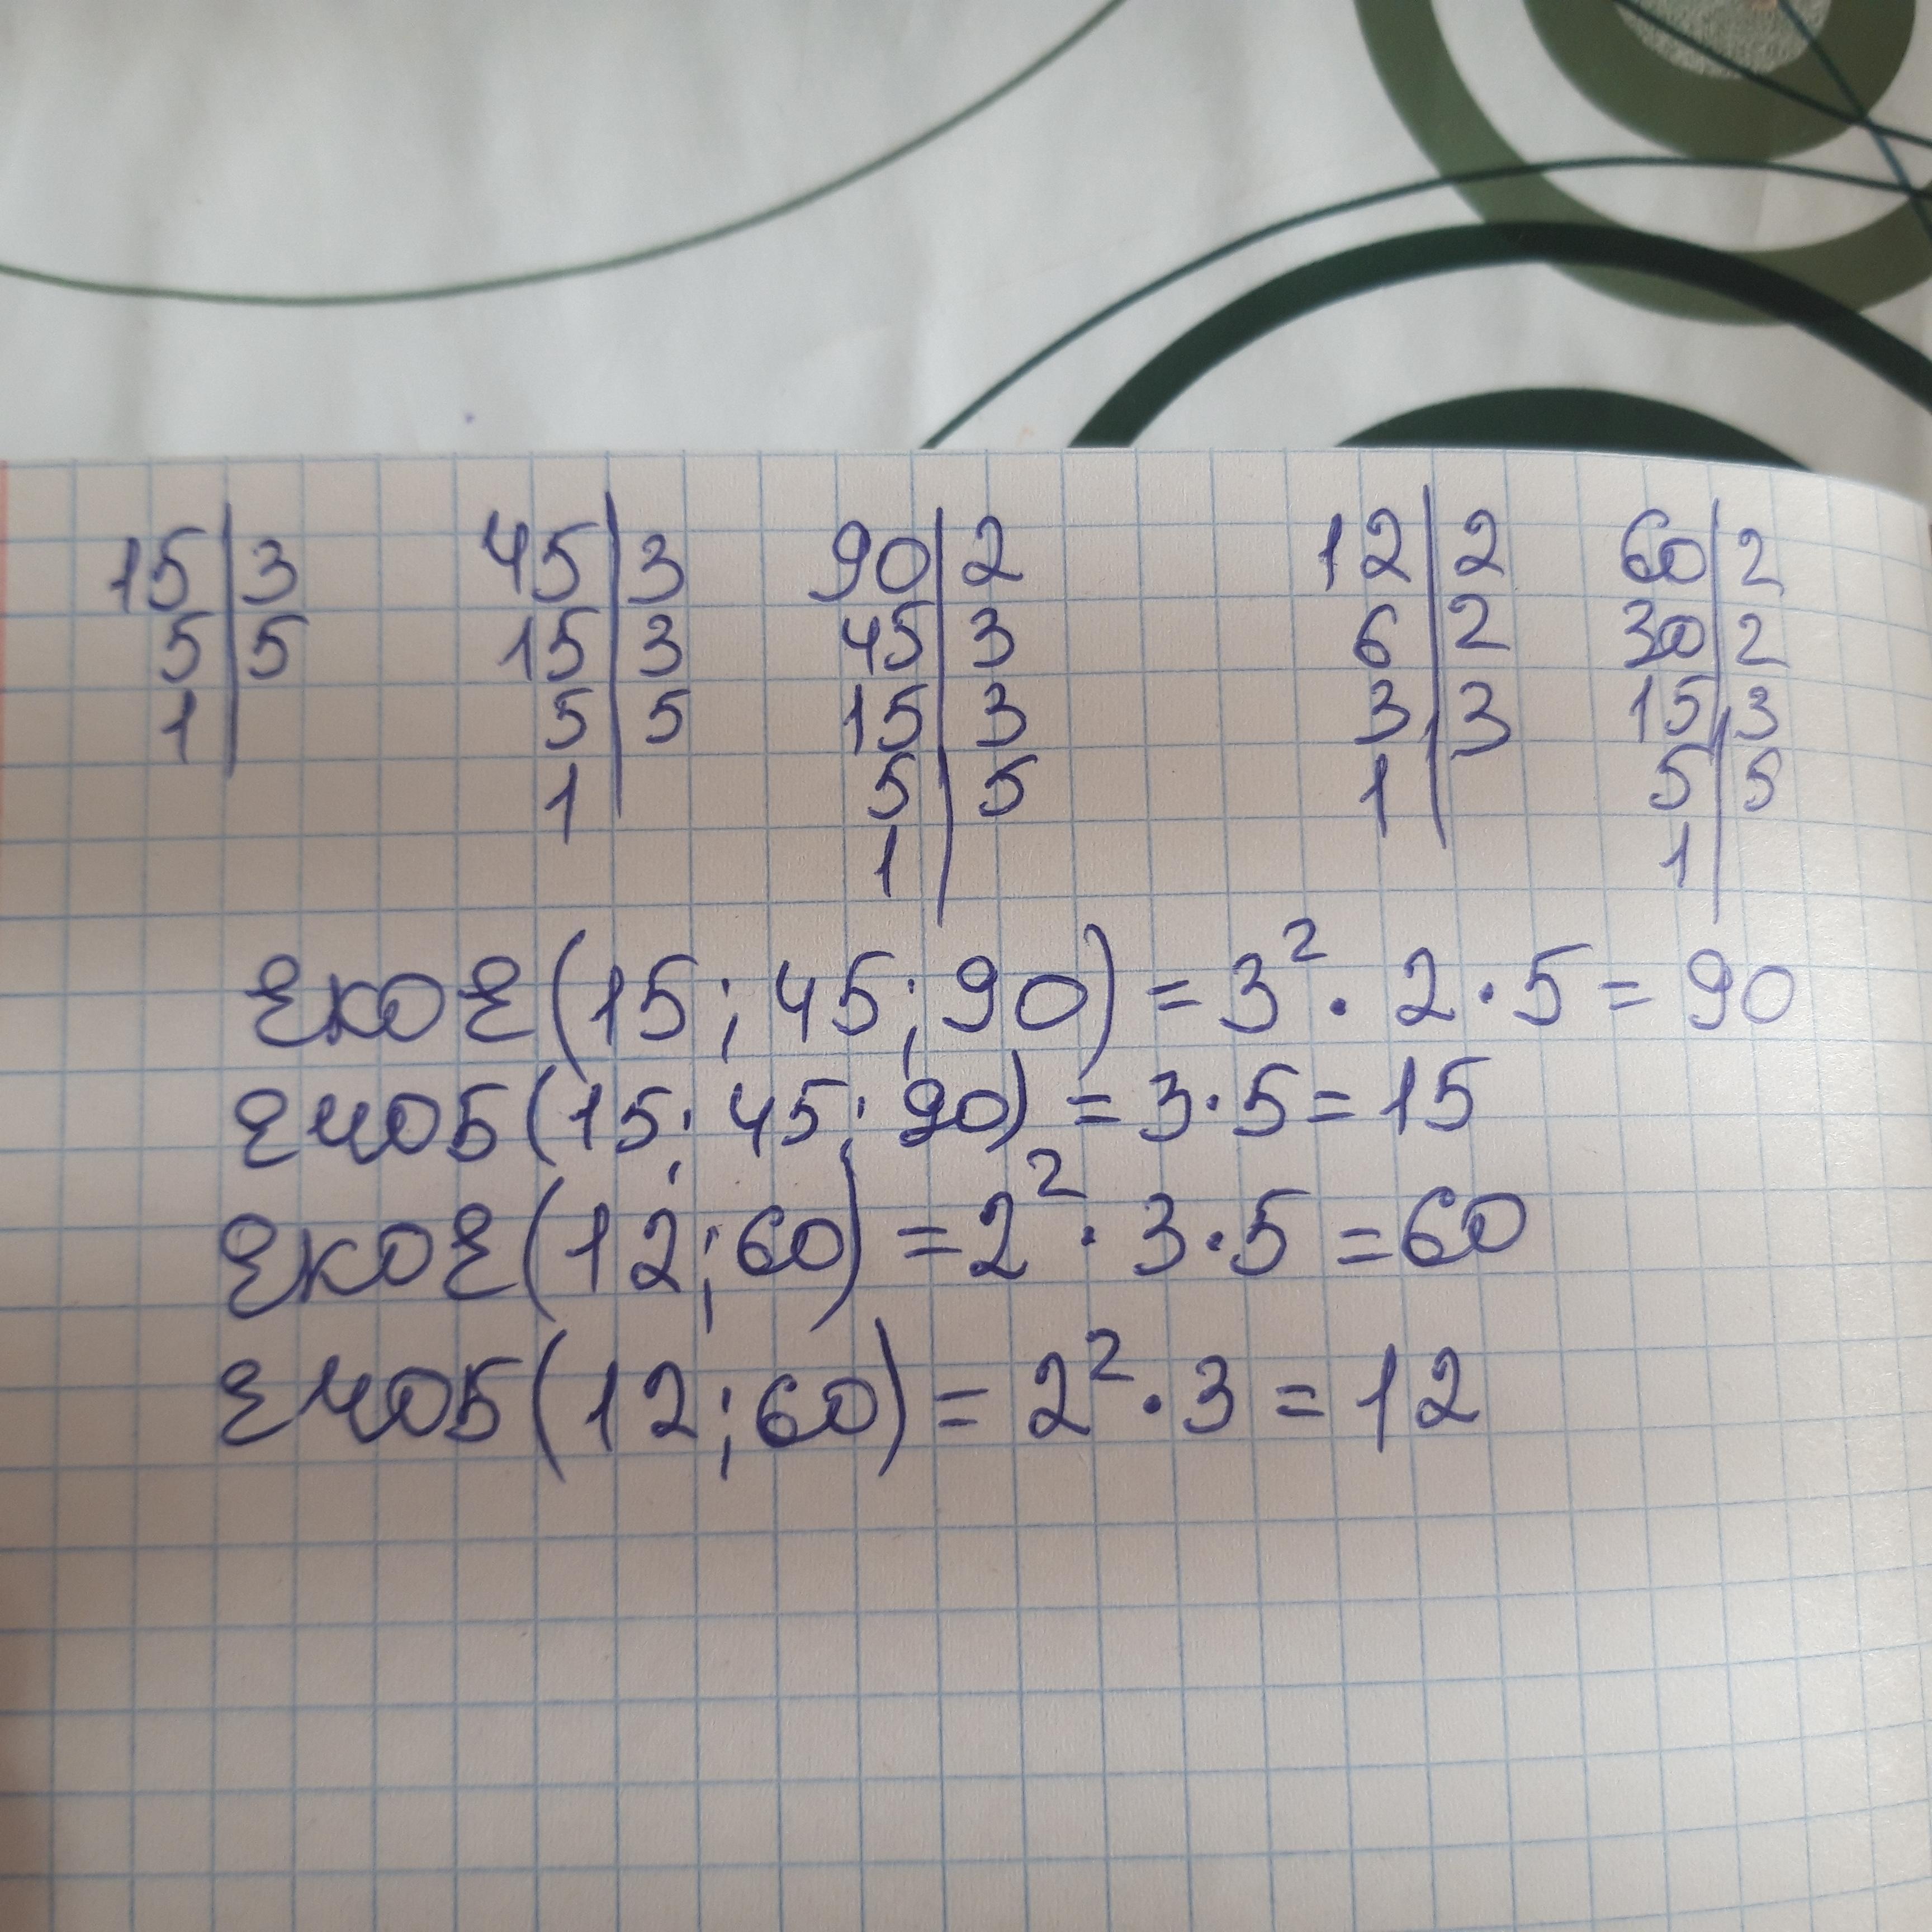 15|3 45|3 90|2 12|2 60|2
5|5 15|3 45|3 6|2 30|2
1| 5|5 15|3 3|3 15|3
1| 5|5 1| 5|5
1| 1|
ЕКОЕ(15; 45; 90) = 3² · 2 · 5 = 90
ЕЧОБ(15; 45; 90) = 3·5 = 15
ЕКОЕ(12; 60) = 2² · 3·5 = 60
ЕЧОБ(12; 60) = 2² · 3 = 12